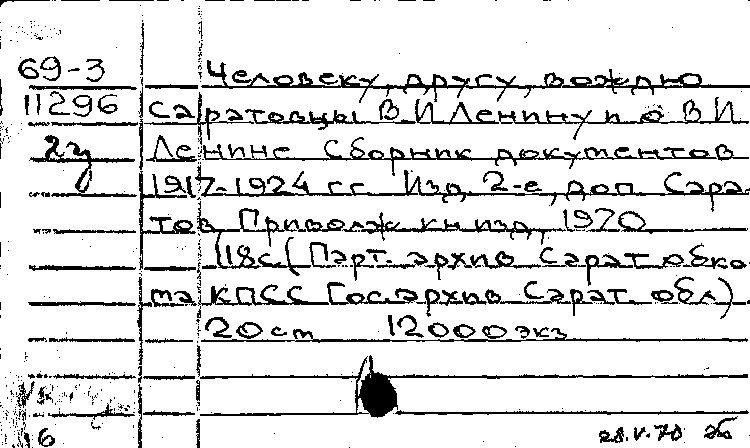 69-3 Человеку, другу, вождю
11296 Саратовцы В И Ленину и о В И
2 ц Ленине Сборник документов
1917-1924 гг. Изд. 2-е, доп. Сара-
тов, Приволж кн изд, 1970
118с. (Парт. архив Сарат обко-
ма КПСС Гос. архив Сарат. обл)
20 см 12000 экз
16
28.V.70